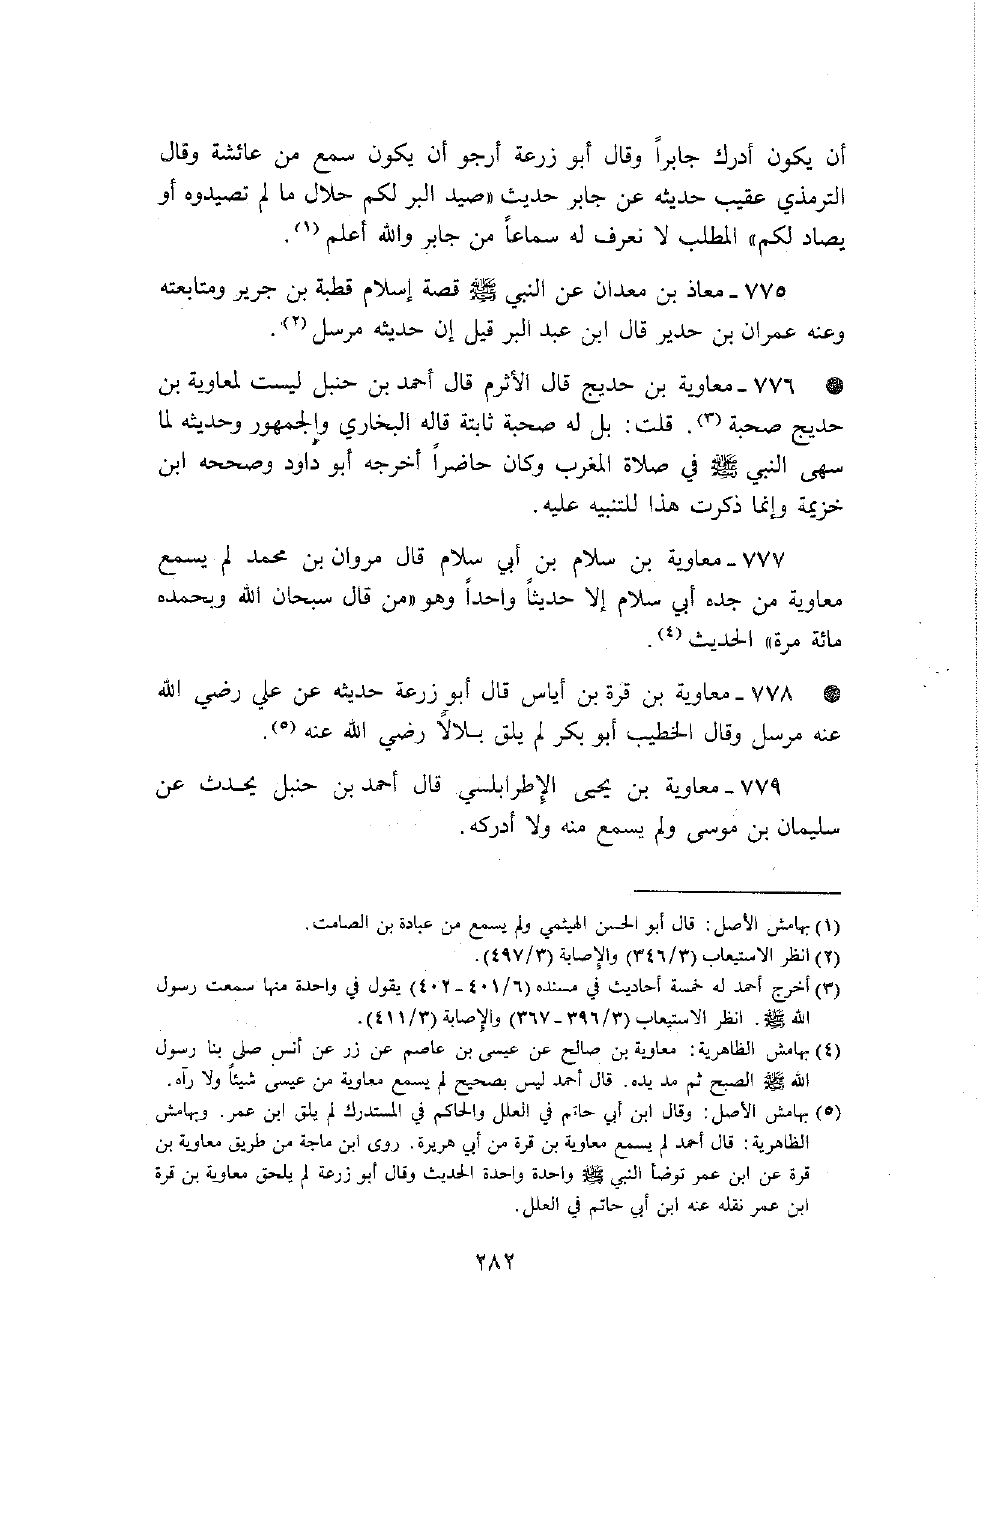 أن يكون أدرك جابراً وقال أبو زرعة أرجو أن يكون سمع من عائشة وقال
الترمذي عقيب حديثه عن جابر حديث «صيد البر لكم حلال ما لم تصيدوه أو
يصاد لكم» المطلب لا نعرف له سماعاً من جابر والله أعلم (١).
٧٧٥ ـ معاذ بن معدان عن النبي ﷺ قصة إسلام قطبة بن جرير ومتابعته
وعنه عمران بن حدير قال ابن عبد البر قيل إن حديثه مرسل (٢).
● ٧٧٦ ـ معاوية بن حديج قال الأثرم قال أحمد بن حنبل ليست لمعاوية بن
حديج صحبة (٣). قلت: بل له صحبة ثابتة قاله البخاري والجمهور وحديثه لما
سهى النبي ﷺ في صلاة المغرب وكان حاضراً أخرجه أبو داود وصححه ابن
خزيمة وإنما ذكرت هذا للتنبيه عليه.
٧٧٧ ـ معاوية بن سلام بن أبي سلام قال مروان بن محمد لم يسمع
معاوية من جده أبي سلام إلا حديثاً واحداً وهو «من قال سبحان الله وبحمده
مائة مرة» الحديث (٤).
● ٧٧٨ ـ معاوية بن قرة بن أياس قال أبو زرعة حديثه عن علي رضي الله
عنه مرسل وقال الخطيب أبو بكر لم يلق بلالاً رضي الله عنه (٥).
٧٧٩ ـ معاوية بن يحيى الإطرابلسي قال أحمد بن حنبل يحدث عن
سليمان بن موسى ولم يسمع منه ولا أدركه.
(١) بهامش الأصل: قال أبو الحسن الهيثمي ولم يسمع من عبادة بن الصامت.
(٢) انظر الاستيعاب (٣٤٦/٣) والإصابة (٤٩٧/٣).
(٣) أخرج أحمد له خمسة أحاديث في مسنده (٤٠١/٦ ـ ٤٠٢) يقول في واحدة منها سمعت رسول
الله ﷺ. انظر الاستيعاب (٣٩٦/٣ ـ ٣٦٧) والإصابة (٤١١/٣).
(٤) بهامش الظاهرية: معاوية بن صالح عن عيسى بن عاصم عن زر عن أنس صلى بنا رسول
الله ﷺ الصبح ثم مد يده. قال أحمد ليس بصحيح لم يسمع معاوية من عيسى شيئاً ولا رآه.
(٥) بهامش الأصل: وقال ابن أبي حاتم في العلل والحاكم في المستدرك لم يلق ابن عمر. وبهامش
الظاهرية: قال أحمد لم يسمع معاوية بن قرة من أبي هريرة. روى ابن ماجة من طريق معاوية بن
قرة عن ابن عمر توضأ النبي ﷺ واحدة واحدة الحديث وقال أبو زرعة لم يلحق معاوية بن قرة
ابن عمر نقله عنه ابن أبي حاتم في العلل.
٢٨٢